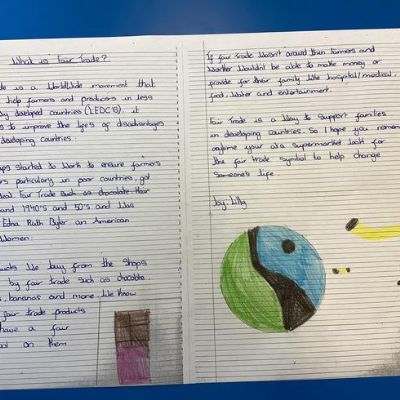 What is Fair Trade?
de is a Worldwide movement that
help farmers and producers in less
ly developed countries (LEDC's). it
s to improve the life's of disadvantages
developing countries.
ps started to work to ensure farmers
rs particulary in poor countries, got
deal. Fair Trade such as chocolate
und 1940's and 50's and was
Edna Ruth Byler an American
Women.
ucts we buy from the shops
by fair trade such as chocolate
s, bananas and more. We know
fair trade products
have a fair
ol on them
If fair trade wasn't around then farmers and
worker wouldn't be able to make money or
provide for their family like hospital/medical,
food, water and entertainment.
Fair Trade is a way to support families
in developing countries. So I hope you remem
anytime your at a supermarket look for
the fair trade symbol to help change
someone's life.
by: Lilly